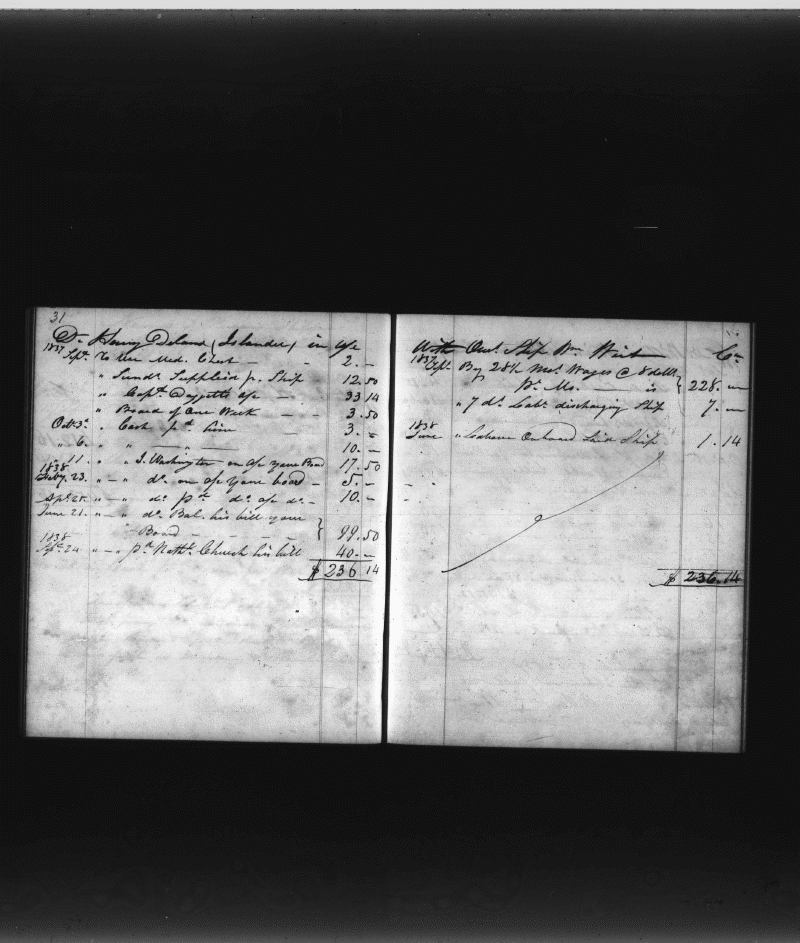 31
Dr. Henry Deland (Islander) in a/c
1837 Sept. To Use Med. Chest — — 2. –
" Sunds. Supplied pr. Ship 12.50
" Capt. Daggetts a/c — 33 14
" Board of One Week — 3.50
Oct. 3d. " Cash pd. him — 3. –
" 6. " — " — " — 10. –
" 11. " J. Washington on a/c your Board 17.50
1838 Feby. 23. " — " do. on a/c your board – 5. –
Apl. 25. " — " do. pd. do. a/c do. – 10. –
June 21. " — " do. Bal. his bill your
Board — — — — } 99.50
1838 Sept. 24 " — " pd. Nathl. Church his bill 40. –
$ 236 14
With Ship Wm. Wirt Cr.
1837 Sept. By 28½ Mos. Wages @ 8 dolls.
Pr. Mo. — is } 228. –
" 7 ds. Labr. discharging Ship 7. –
1838 June " Onboard Said Ship 1.14
$ 236.14